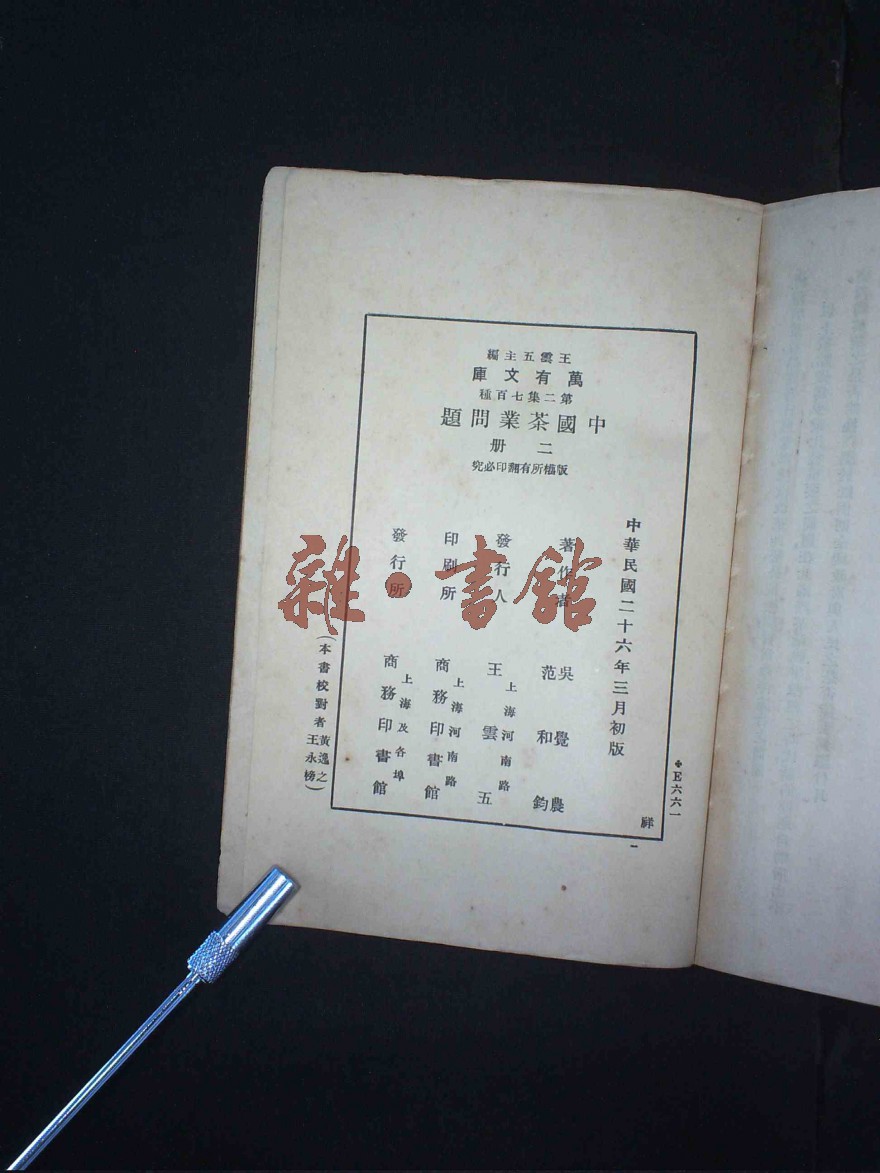 王雲五主編
萬有文庫
第二集七百種
中國茶業問題
二册
版權所有翻印必究
中華民國二十六年三月初版
著作者 吳覺農 范和鈞
發行人 王雲五 上海河南路
印刷所 商務印書館 上海河南路
發行所 商務印書館 上海及各埠
(本書校對者黃逸之 王永榜)
E六六一
祥
雜·書館